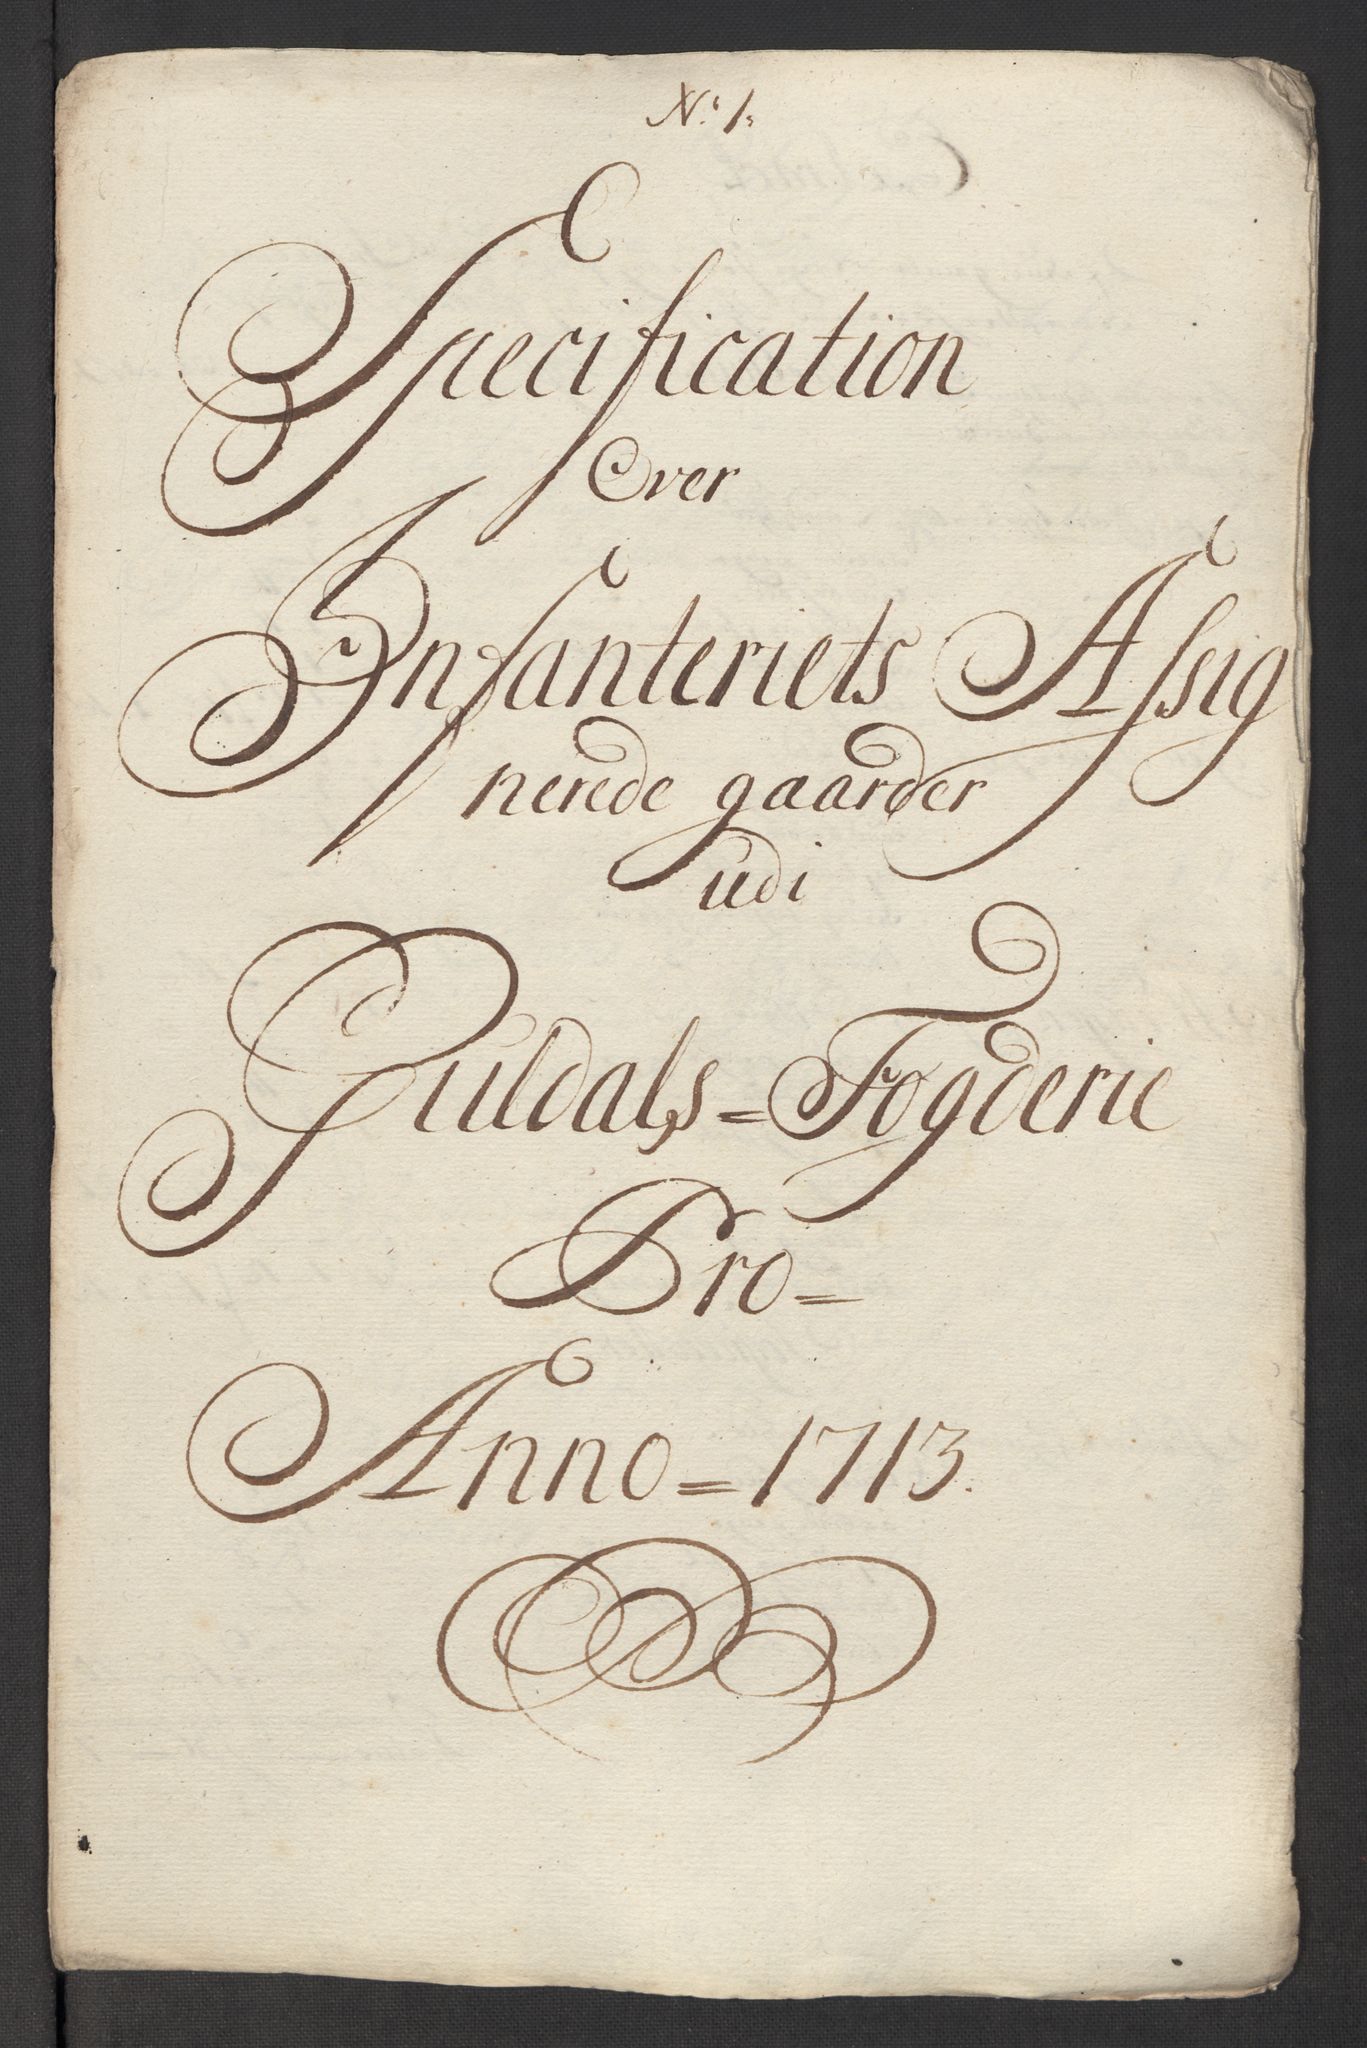 No 1.
Specification
Over
Infanteriets Assig
nerede gaarder
udi
Guldals = Fogderie
Pro =
Anno = 1713.